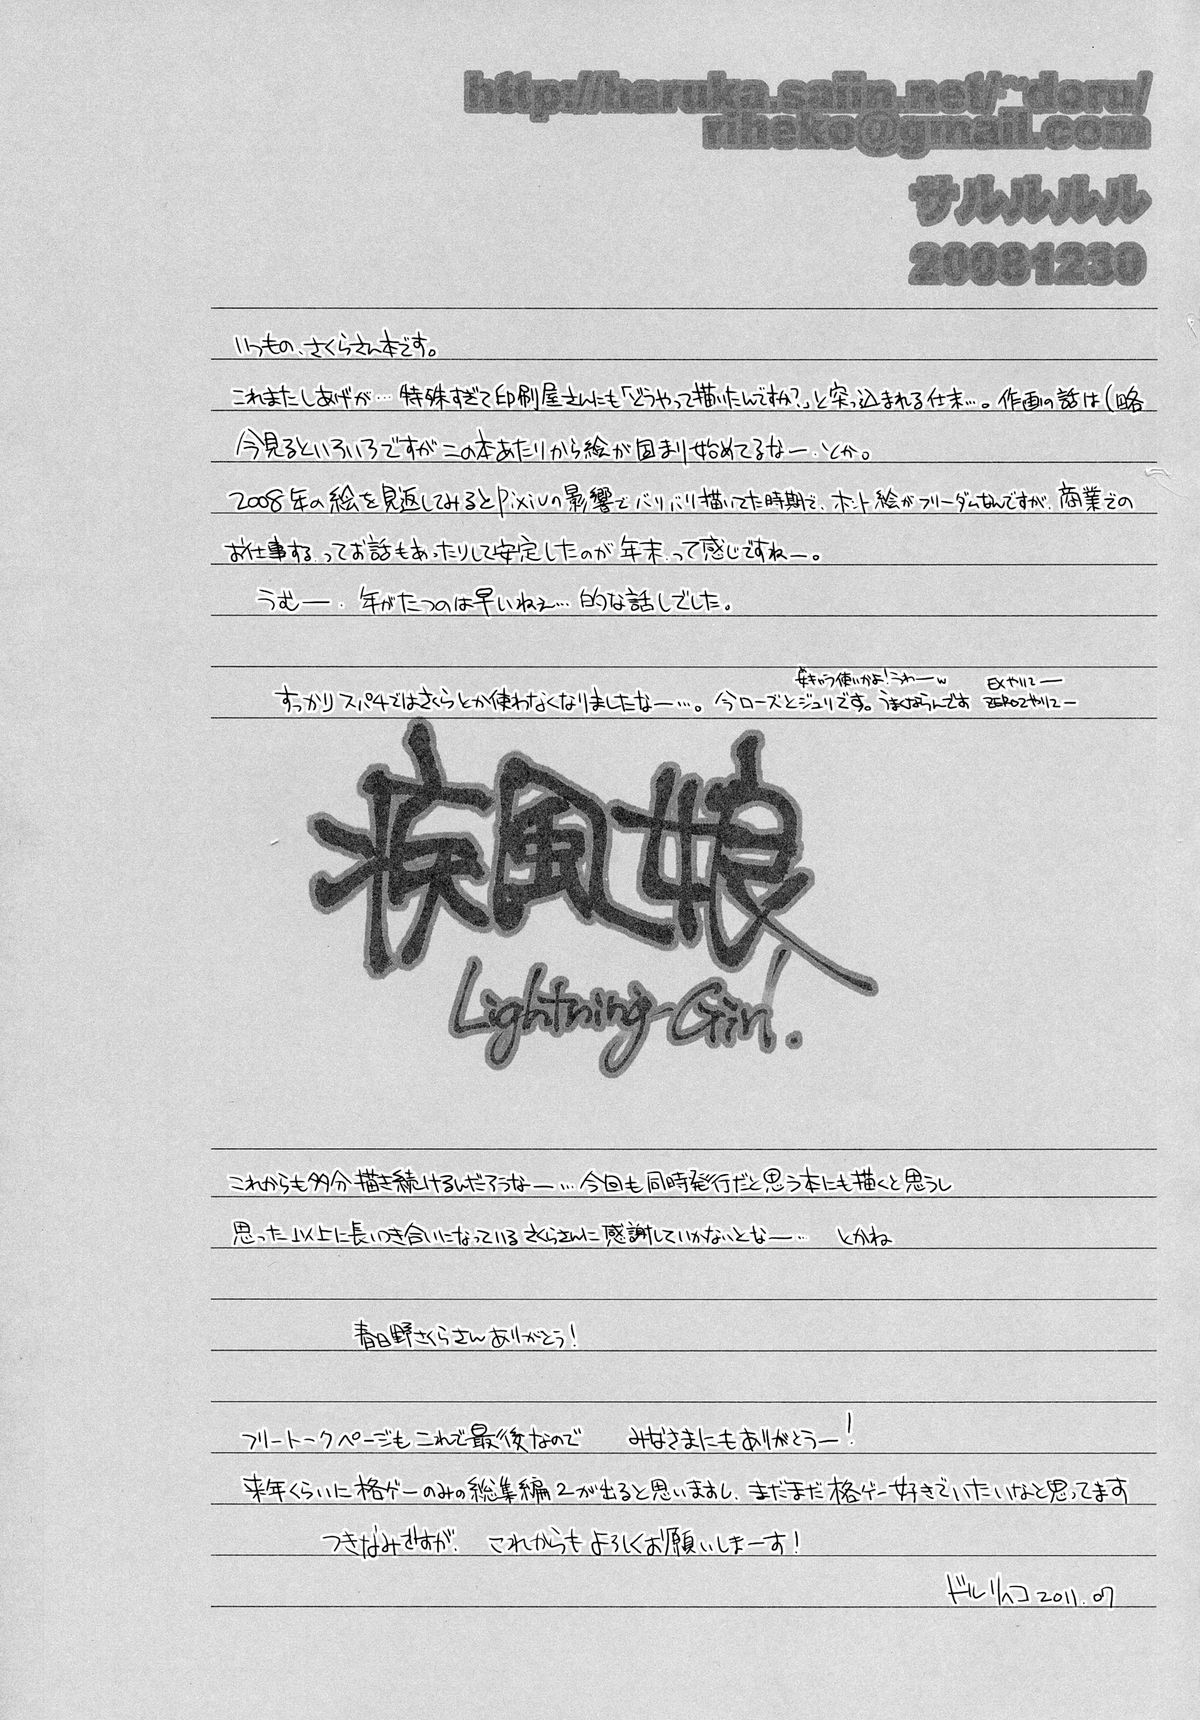 http://haruka.saiin.net/~doru/
riheko@gmail.com
サルルルル
20081230
いつもの、さくらさん本です。
これまたしあげが…特殊すぎて印刷屋さんにも「どうやって描いたんですか?」と突っ込まれる仕末…。作画の話は(略
今見るといろいろですがこの本あたりから絵が固まり始めてるなー、とか。
2008年の絵を見返してみるとpixivの影響でバリバリ描いてた時期で、ホント絵がフリーダムなんですが、商業での
お仕事する、ってお話もあったりして安定したのが年末、って感じですねー。
うむー、年がたつのは早いねぇ…的な話しでした。
すっかりスパ4ではさくらとか使わなくなりましたなー…。今ローズとジュリです。うまくならんです
安キャラ使いかよ!うわーw
EXやりてー
ZERO2やりてー
疾風娘
Lightning-Girl.
これからも多分描き続けるんだろうなー…今回も同時発行だと思う本にも描くと思うし
思った以上に長いつき合いになっているさくらさんに感謝していかないとなー… とかね
春日野さくらさんありがとう!
フリートークページもこれで最後なので みなさまにもありがとうー!
来年くらいに格ゲーのみの総集編2が出ると思いますし、まだまだ格ゲー好きでいたいなと思ってます
つきなみですが、これからもよろしくお願いしまーす!
ドルリヘコ 2011.07